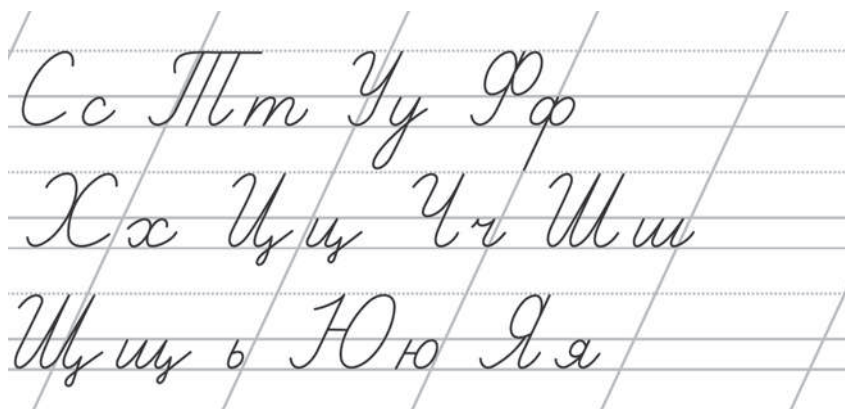 Сс Тт Уу Фф
Хх Цц Чч Шш
Щщ ь Юю Яя